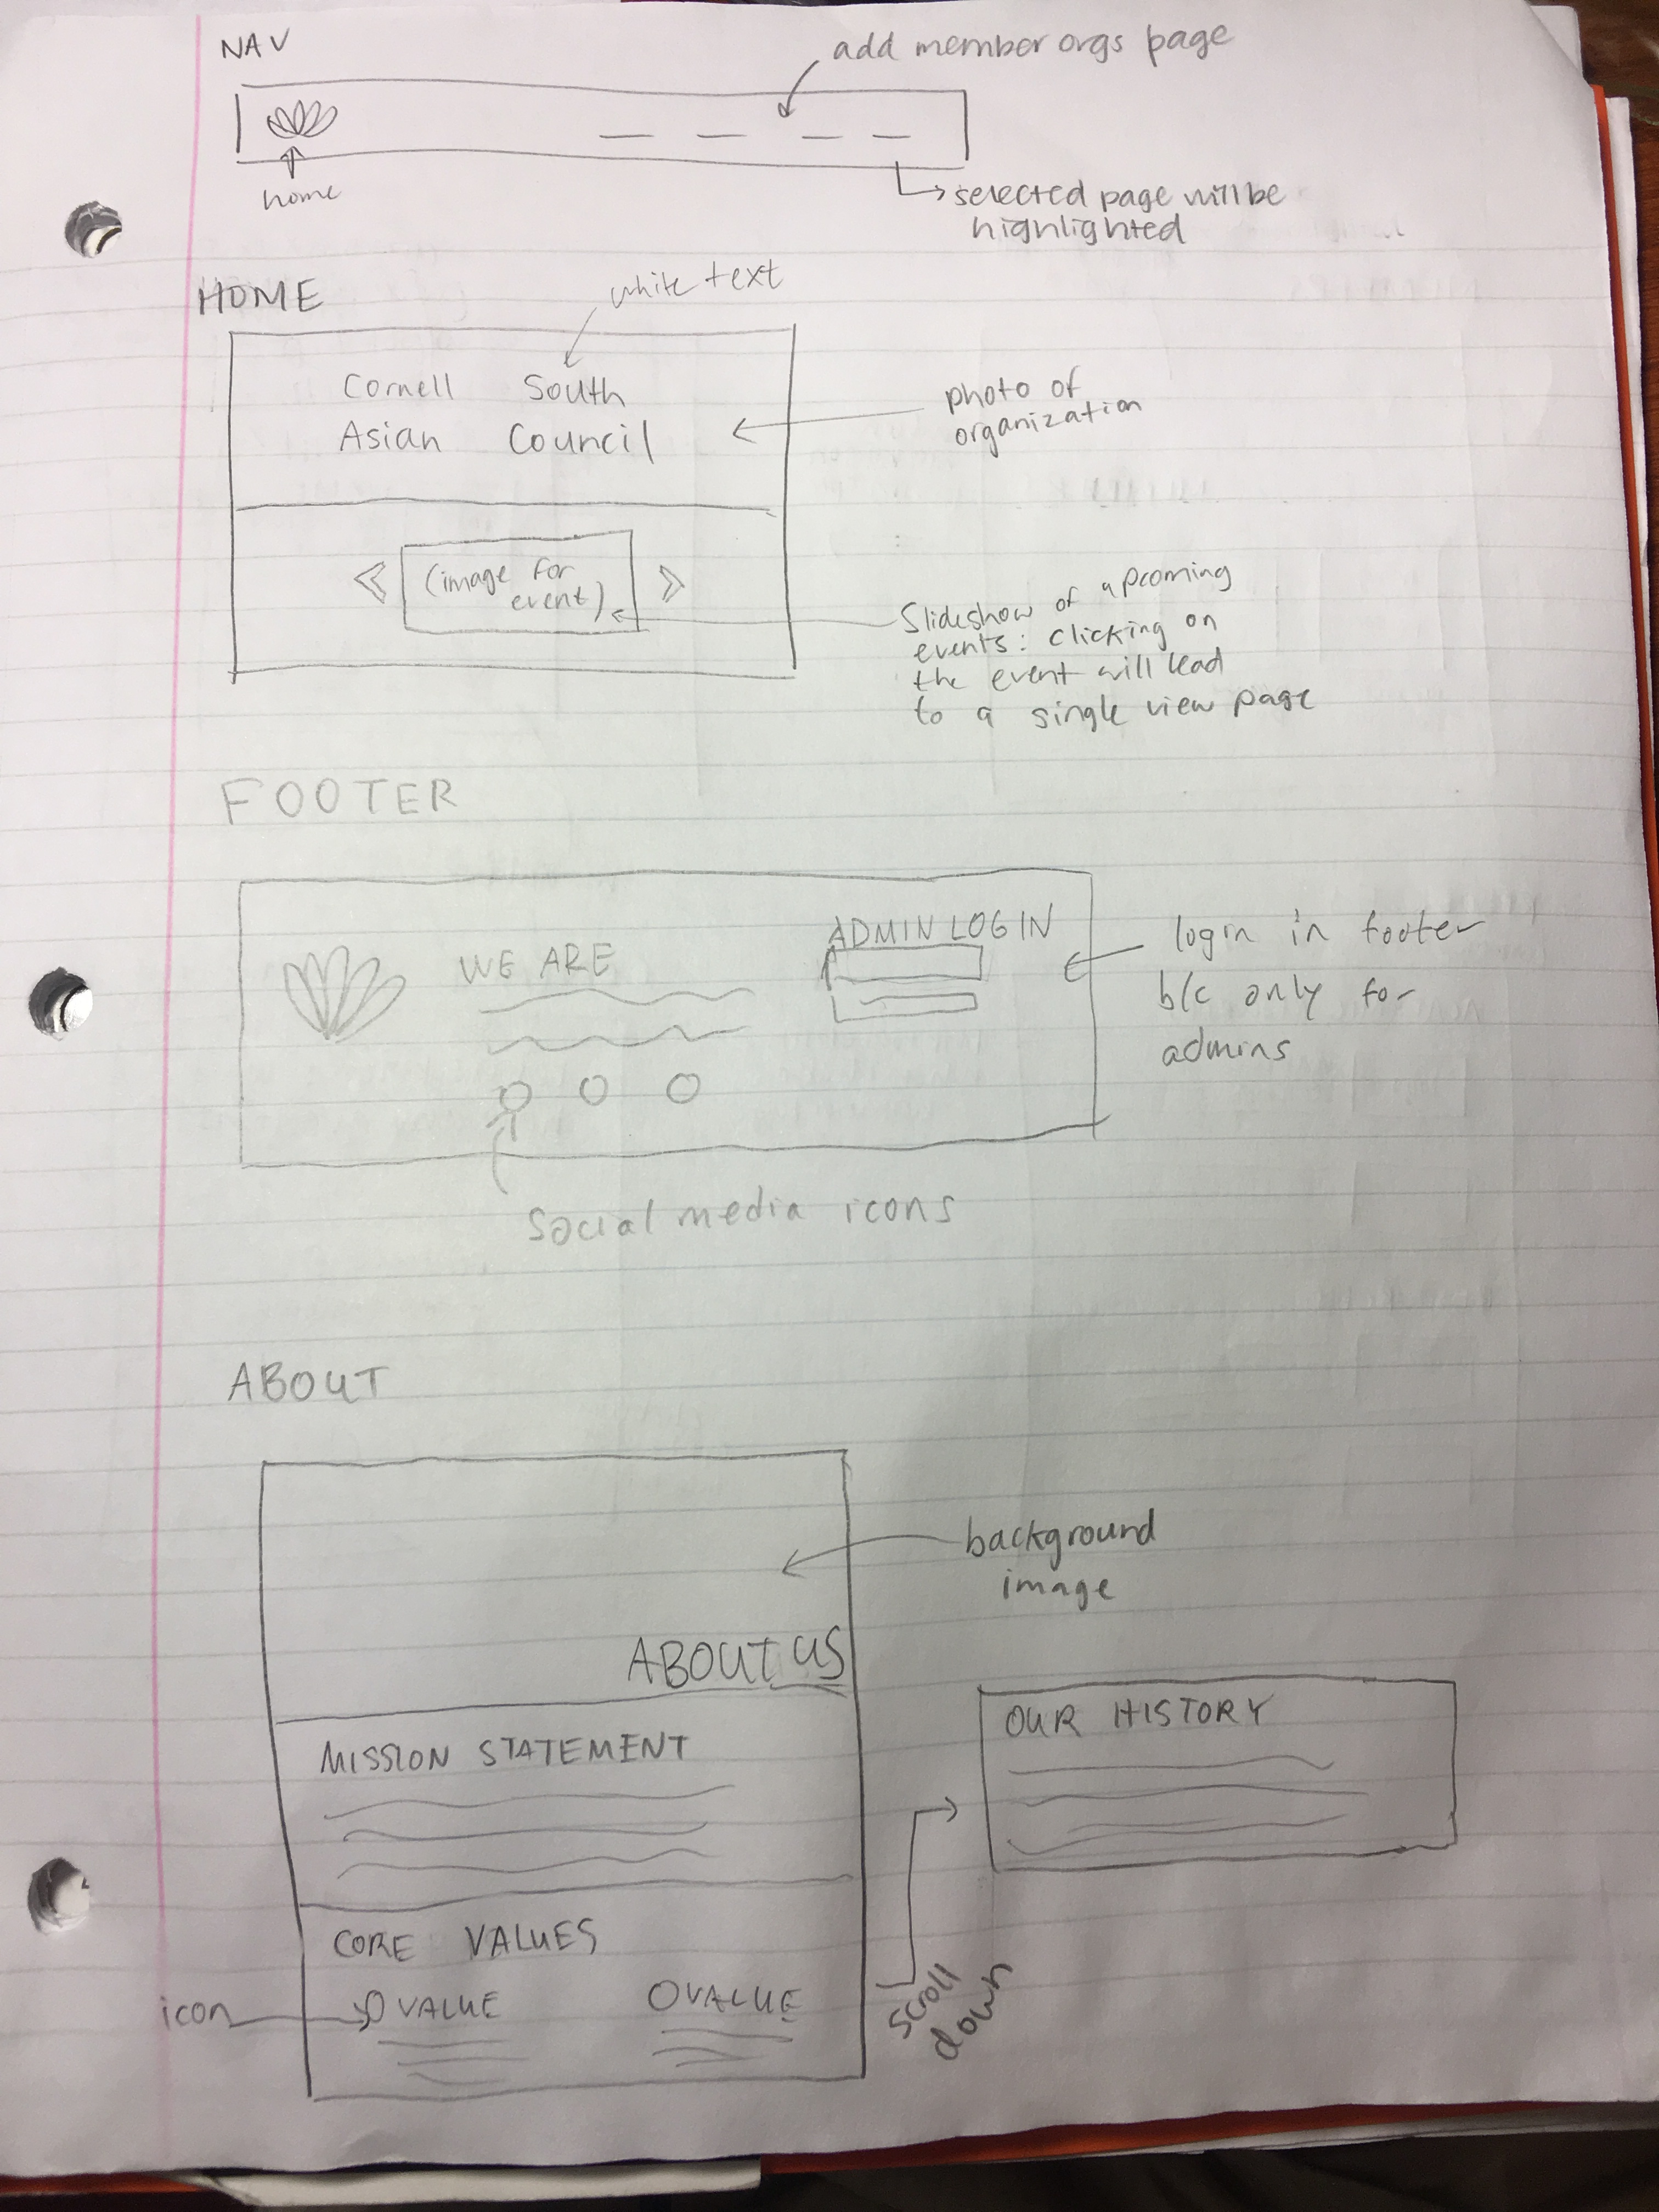 NAV
add member orgs page
home
selected page will be
highlighted
HOME
white text
Cornell South
Asian Council
photo of
organization
(image for
event)
Slideshow of upcoming
events: clicking on
the event will lead
to a single view page
FOOTER
WE ARE
ADMIN LOGIN
login in footer
b/c only for
admins
social media icons
ABOUT
background
image
ABOUT US
MISSION STATEMENT
OUR HISTORY
CORE VALUES
icon
VALUE
VALUE
scroll
down